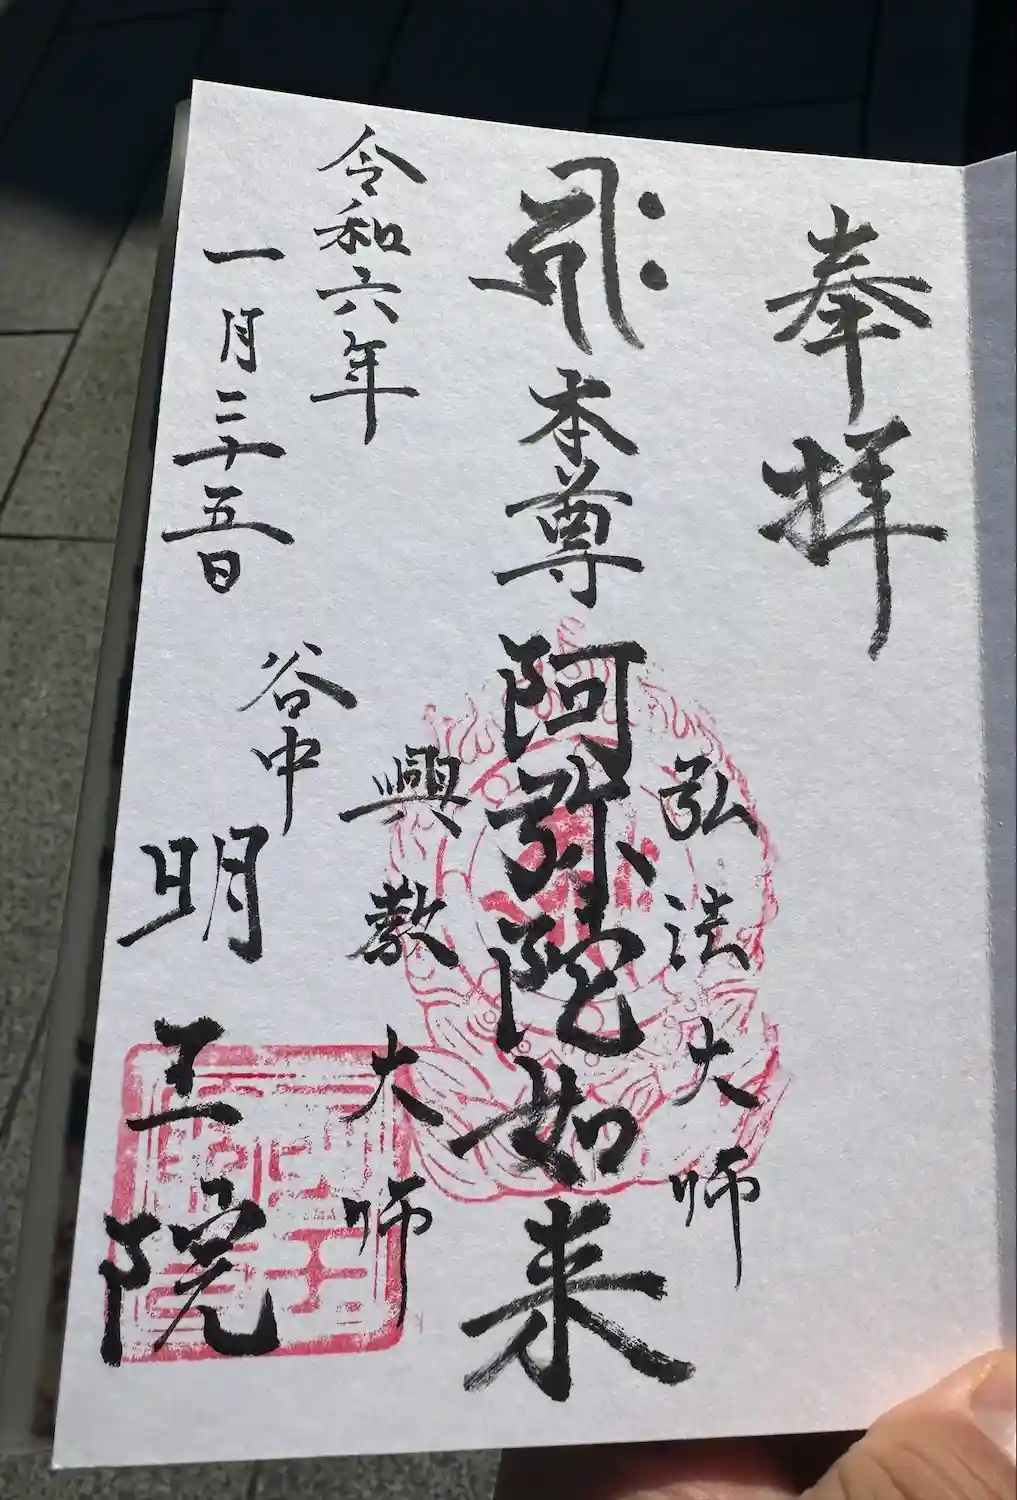 奉拝
弘法大師
𑖮𑖿𑖨𑖱𑖾 本尊 阿弥陀如来
興教大師
令和六年
一月二十五日
谷中
明王院